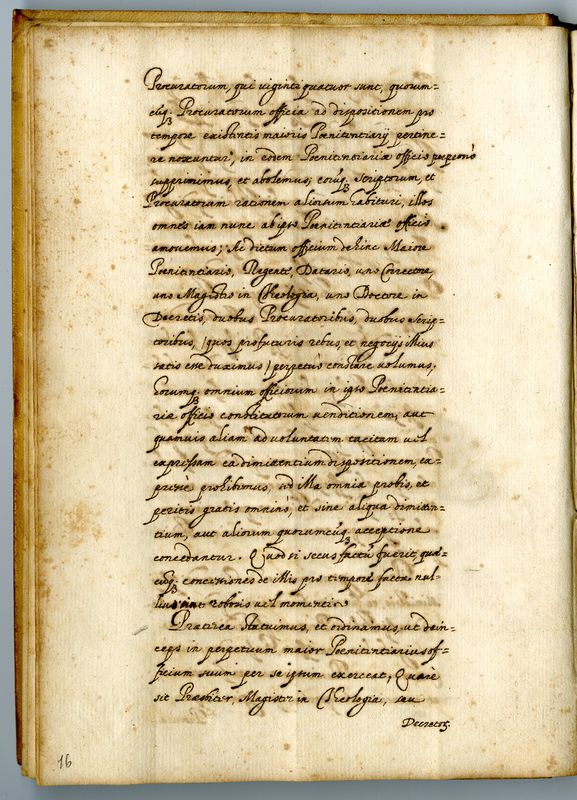 Procuratorum, qui vigintiquatuor sunt, quorum=
cūq; Procuratorum officia ad dispositionem pro
tempore existentis maioris Poenitentiarij pertine=
re noscuntur, in eodem Poenitentiariæ officio perpetuò
supprimimus, et abolemus; eorūq; Scriptorum, et
Procuratorum rationem aliorsum habituri, illos
omnes iam nunc ab ipso Poenitentiariæ officio
amouemus; Ac dictum officium dehinc Maiore
Poenitentiario, Regente, Datario, uno Correctore,
uno Magistro in Theologia, uno Doctore in
Decretis, duobus Procuratoribus, duobus Scrip=
toribus, /quos profuturis rebus, et negocijs illius
satis esse duximus/ perpetuò constare uolumus.
Horumq; omnium officiorum in ipso Poenitentia=
riæ officio constitutorum uenditionem, aut
quamuis aliam ad uoluntatem tacitam uel
expressam ea dimittentium dispositionem, ex=
pressè prohibemus, sed illa omnia probis, et
peritis gratis omninò, et sine aliqua dimitten=
tium, aut aliorum quorumcūq; acceptione
concedantur. Quod si secus factū fuerit, quæ=
cūq; concessiones de illis pro tempore factæ nul=
lius sint roboris uel momenti.
Præterea statuimus, et ordinamus, ut dein=
ceps in perpetuum maior Poenitentiarius of=
ficium suum per se ipsum exerceat, Quare
sit Præsbiter, Magister in Theologia, seu
Decretor̃
16